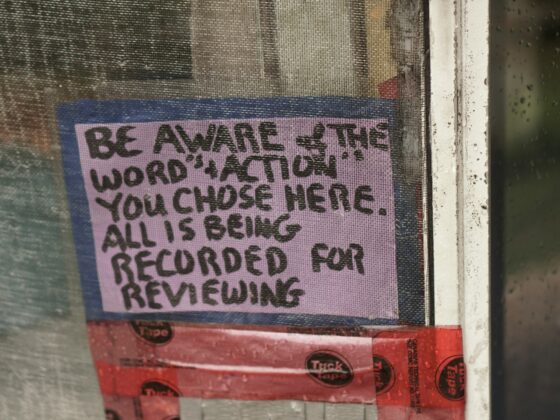 BE AWARE of THE
WORD"+ACTION"
YOU CHOSE HERE.
ALL IS BEING
RECORDED FOR
REVIEWING
Tuck
Tape
Tuck
Tape
Tuck
Tape